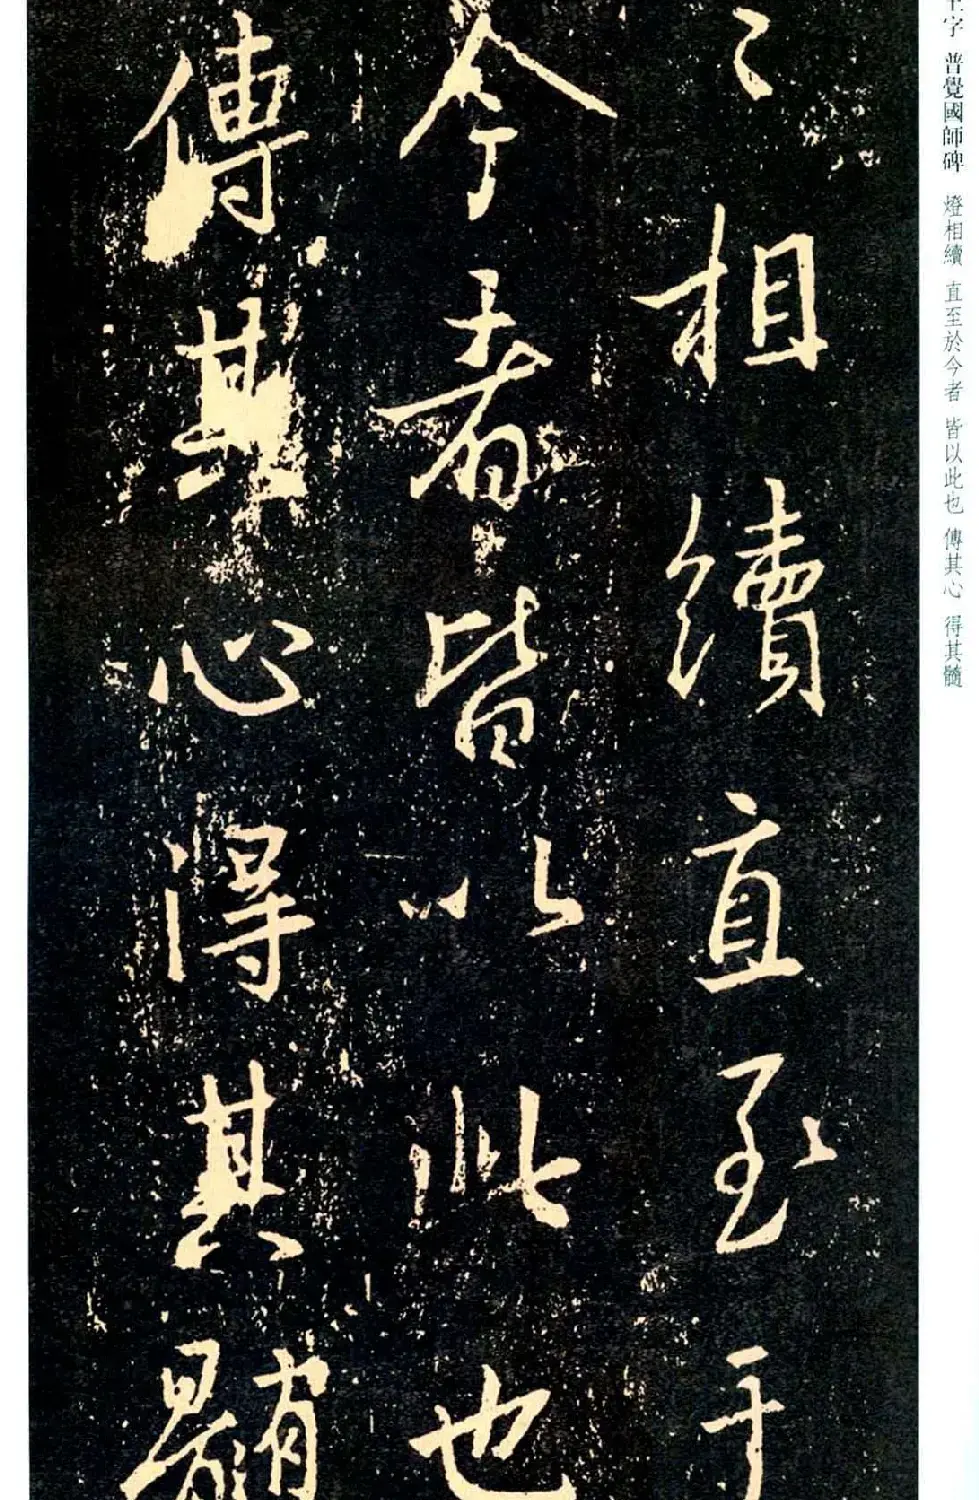 字 普覺國師碑 燈相續 直至於今者 皆以此也 傳其心 得其髓
〻相續直至于
今者皆以此也
傳其心得其髓